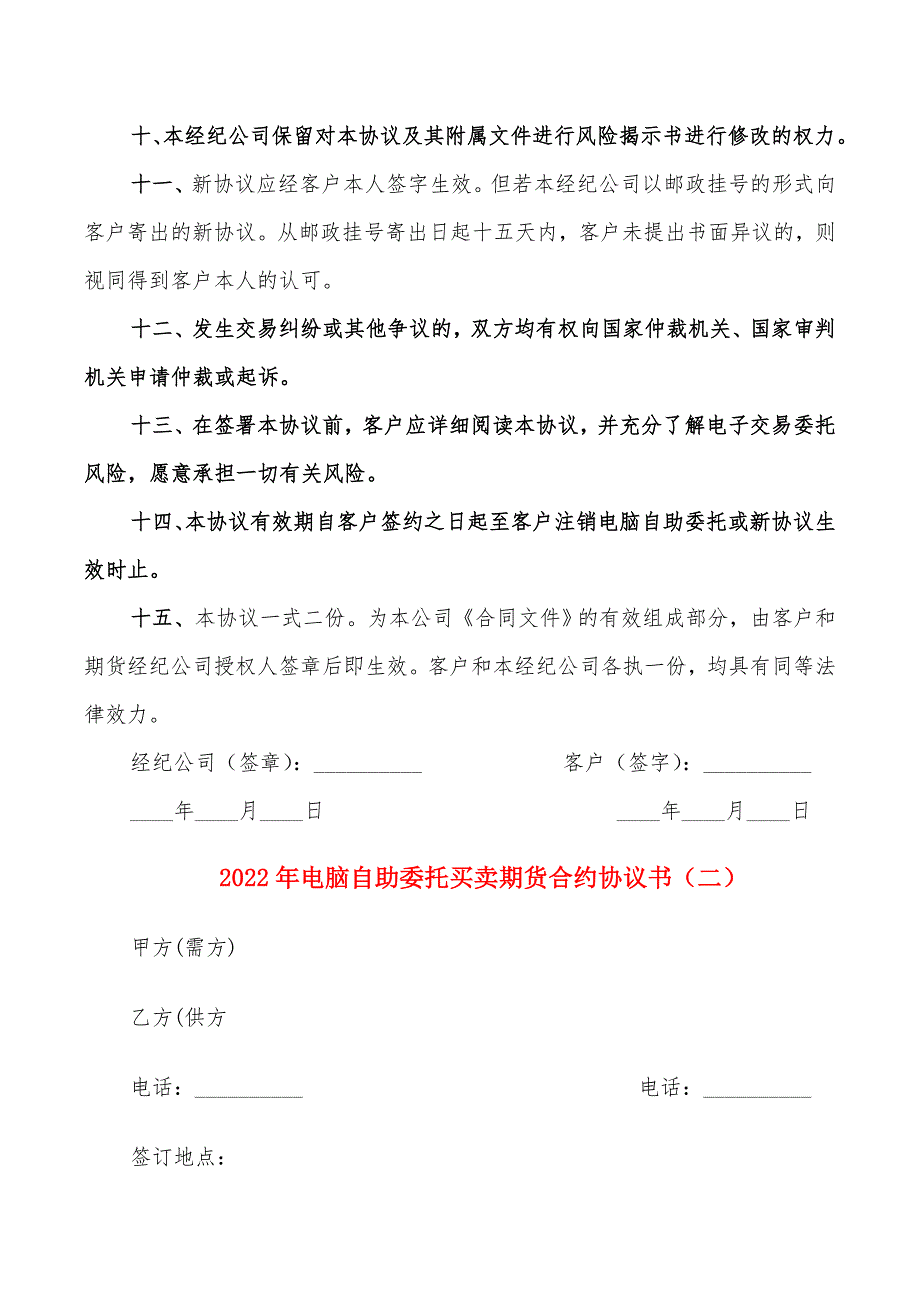 十、本经纪公司保留对本协议及其附属文件进行风险揭示书进行修改的权力。
十一、新协议应经客户本人签字生效。但若本经纪公司以邮政挂号的形式向
客户寄出的新协议。从邮政挂号寄出日起十五天内，客户未提出书面异议的，则
视同得到客户本人的认可。
十二、发生交易纠纷或其他争议的，双方均有权向国家仲裁机关、国家审判
机关申请仲裁或起诉。
十三、在签署本协议前，客户应详细阅读本协议，并充分了解电子交易委托
风险，愿意承担一切有关风险。
十四、本协议有效期自客户签约之日起至客户注销电脑自助委托或新协议生
效时止。
十五、本协议一式二份。为本公司《合同文件》的有效组成部分，由客户和
期货经纪公司授权人签章后即生效。客户和本经纪公司各执一份，均具有同等法
律效力。
经纪公司（签章）：__________ 客户（签字）：__________
____年____月____日 ____年____月____日
2022年电脑自助委托买卖期货合约协议书（二）
甲方(需方)
乙方(供方
电话：__________ 电话：__________
签订地点：